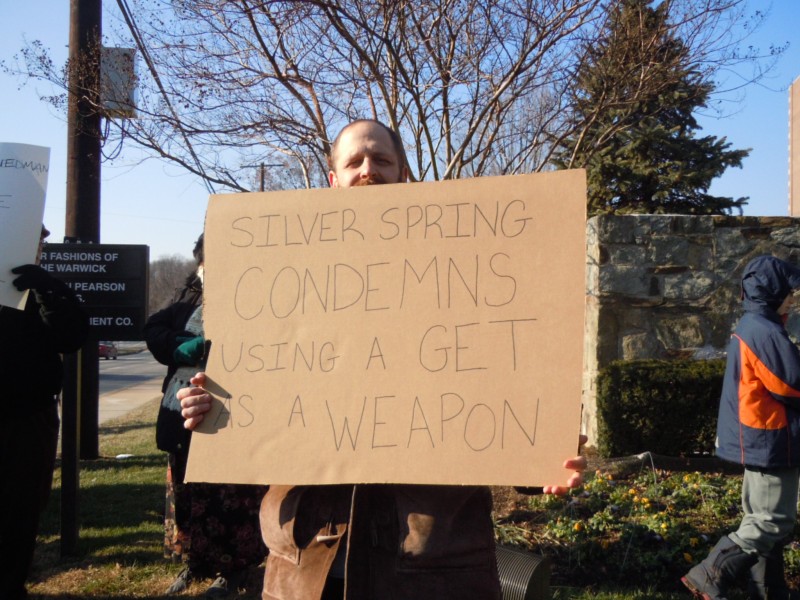 IEDMAN
E
R FASHIONS OF
HE WARWICK
PEARSON
ENT CO.
SILVER SPRING
CONDEMNS
USING A GET
AS A WEAPON